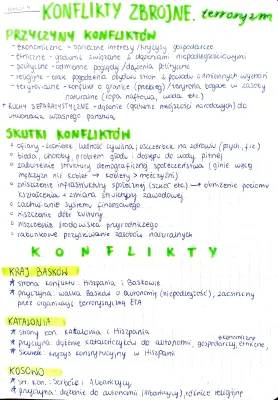 KONFLIKTY ZBROJNE. terroryzm
PRZYCZYNY KONFLIKTÓW
- ekonomiczne - sprzeczne interesy / kryzysy gospodarcze
- etniczne - związane z dążeniami niepodległościowymi
- polityczne - odmienne poglądy i dążenia polityczne
- religijne - brak pogodzenia dwóch stron z powodu odmiennych wyznań
- terytorialne - konflikt o granice (przebieg) / terytoria bogate w zasoby
naturalne (ropa naftowa, woda etc.)
* RUCHY SEPARATYSTYCZNE - dążenie (głównie mniejszości narodowych) do
utworzenia własnego państwa
SKUTKI KONFLIKTÓW
ofiary - żołnierze, ludność cywilna, uszczerbek na zdrowiu (psych., fiz.)
bieda, choroby, problem głodu i dostępu do wody pitnej
zaburzenie struktury demograficznej społeczeństwa (ginie więcej
mężczyzn niż kobiet → kobiety > mężczyźni)
zniszczenie infrastruktury społecznej (szkoł etc.) → obniżenie poziomu
kształcenia + zmiana struktury zawodowej
zachwianie systemu finansowego
niszczenie dóbr kultury
niszczenie środowiska przyrodniczego
rabunkowe pozyskiwanie zasobów naturalnych
KONFLIKTY
KRAJ BASKÓW
* strona konfliktu: Hiszpania i Baskowie
* przyczyna: walka Basków o autonomię (niepodległość), zaostrzony
przez organizację terrorystyczną ETA
KATALONIA
* strony kon. Katalonia i Hiszpania
* przyczyna: dążenie katalończyków do autonomii, gospodarczej, etniczne, ekonomiczne
* Skutek: kryzys konstytucyjny w Hiszpanii
KOSOWO
* str. kon.: Serbowie i Albańczycy,
* przyczyna: dążenie do autonomii (Albańczycy), różnice religijne